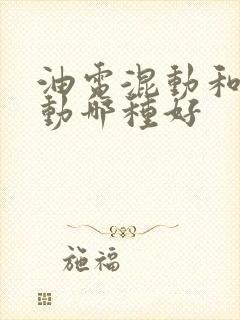 油電混動和
動哪種好
施福